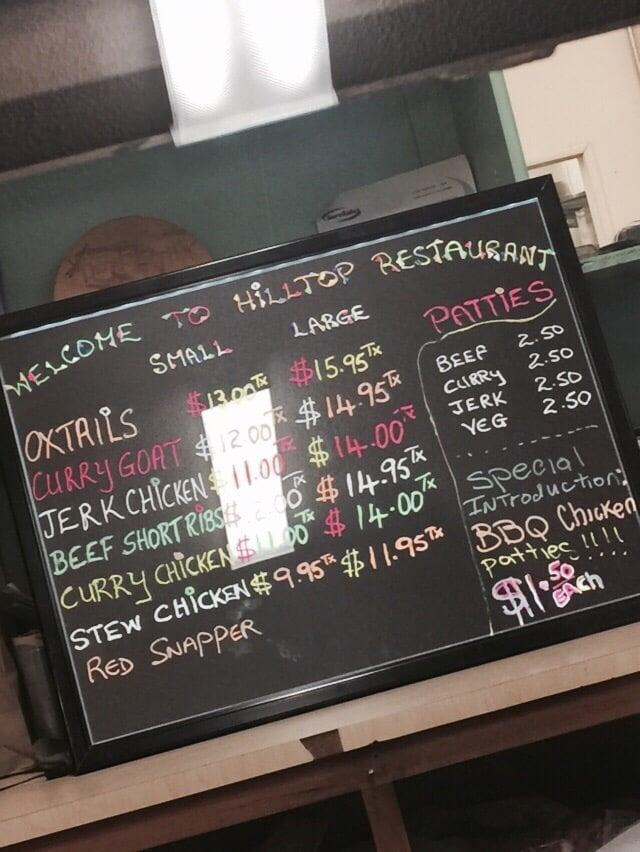 WELCOME TO HILLTOP RESTAURANT
SMALL LARGE
OXTAILS $13.00Tx $15.95Tx
CURRY GOAT $12.00Tx $14.95Tx
JERK CHICKEN $11.00Tx $14.00Tx
BEEF SHORT RIBS $ Tx $14.95Tx
CURRY CHICKEN $11.00Tx $14.00Tx
STEW CHICKEN $9.95Tx $11.95Tx
RED SNAPPER
PATTIES
BEEF 2.50
CURRY 2.50
JERK 2.50
VEG 2.50
Special
Introduction:
BBQ Chicken
Patties!!!!
$1.50 EACh